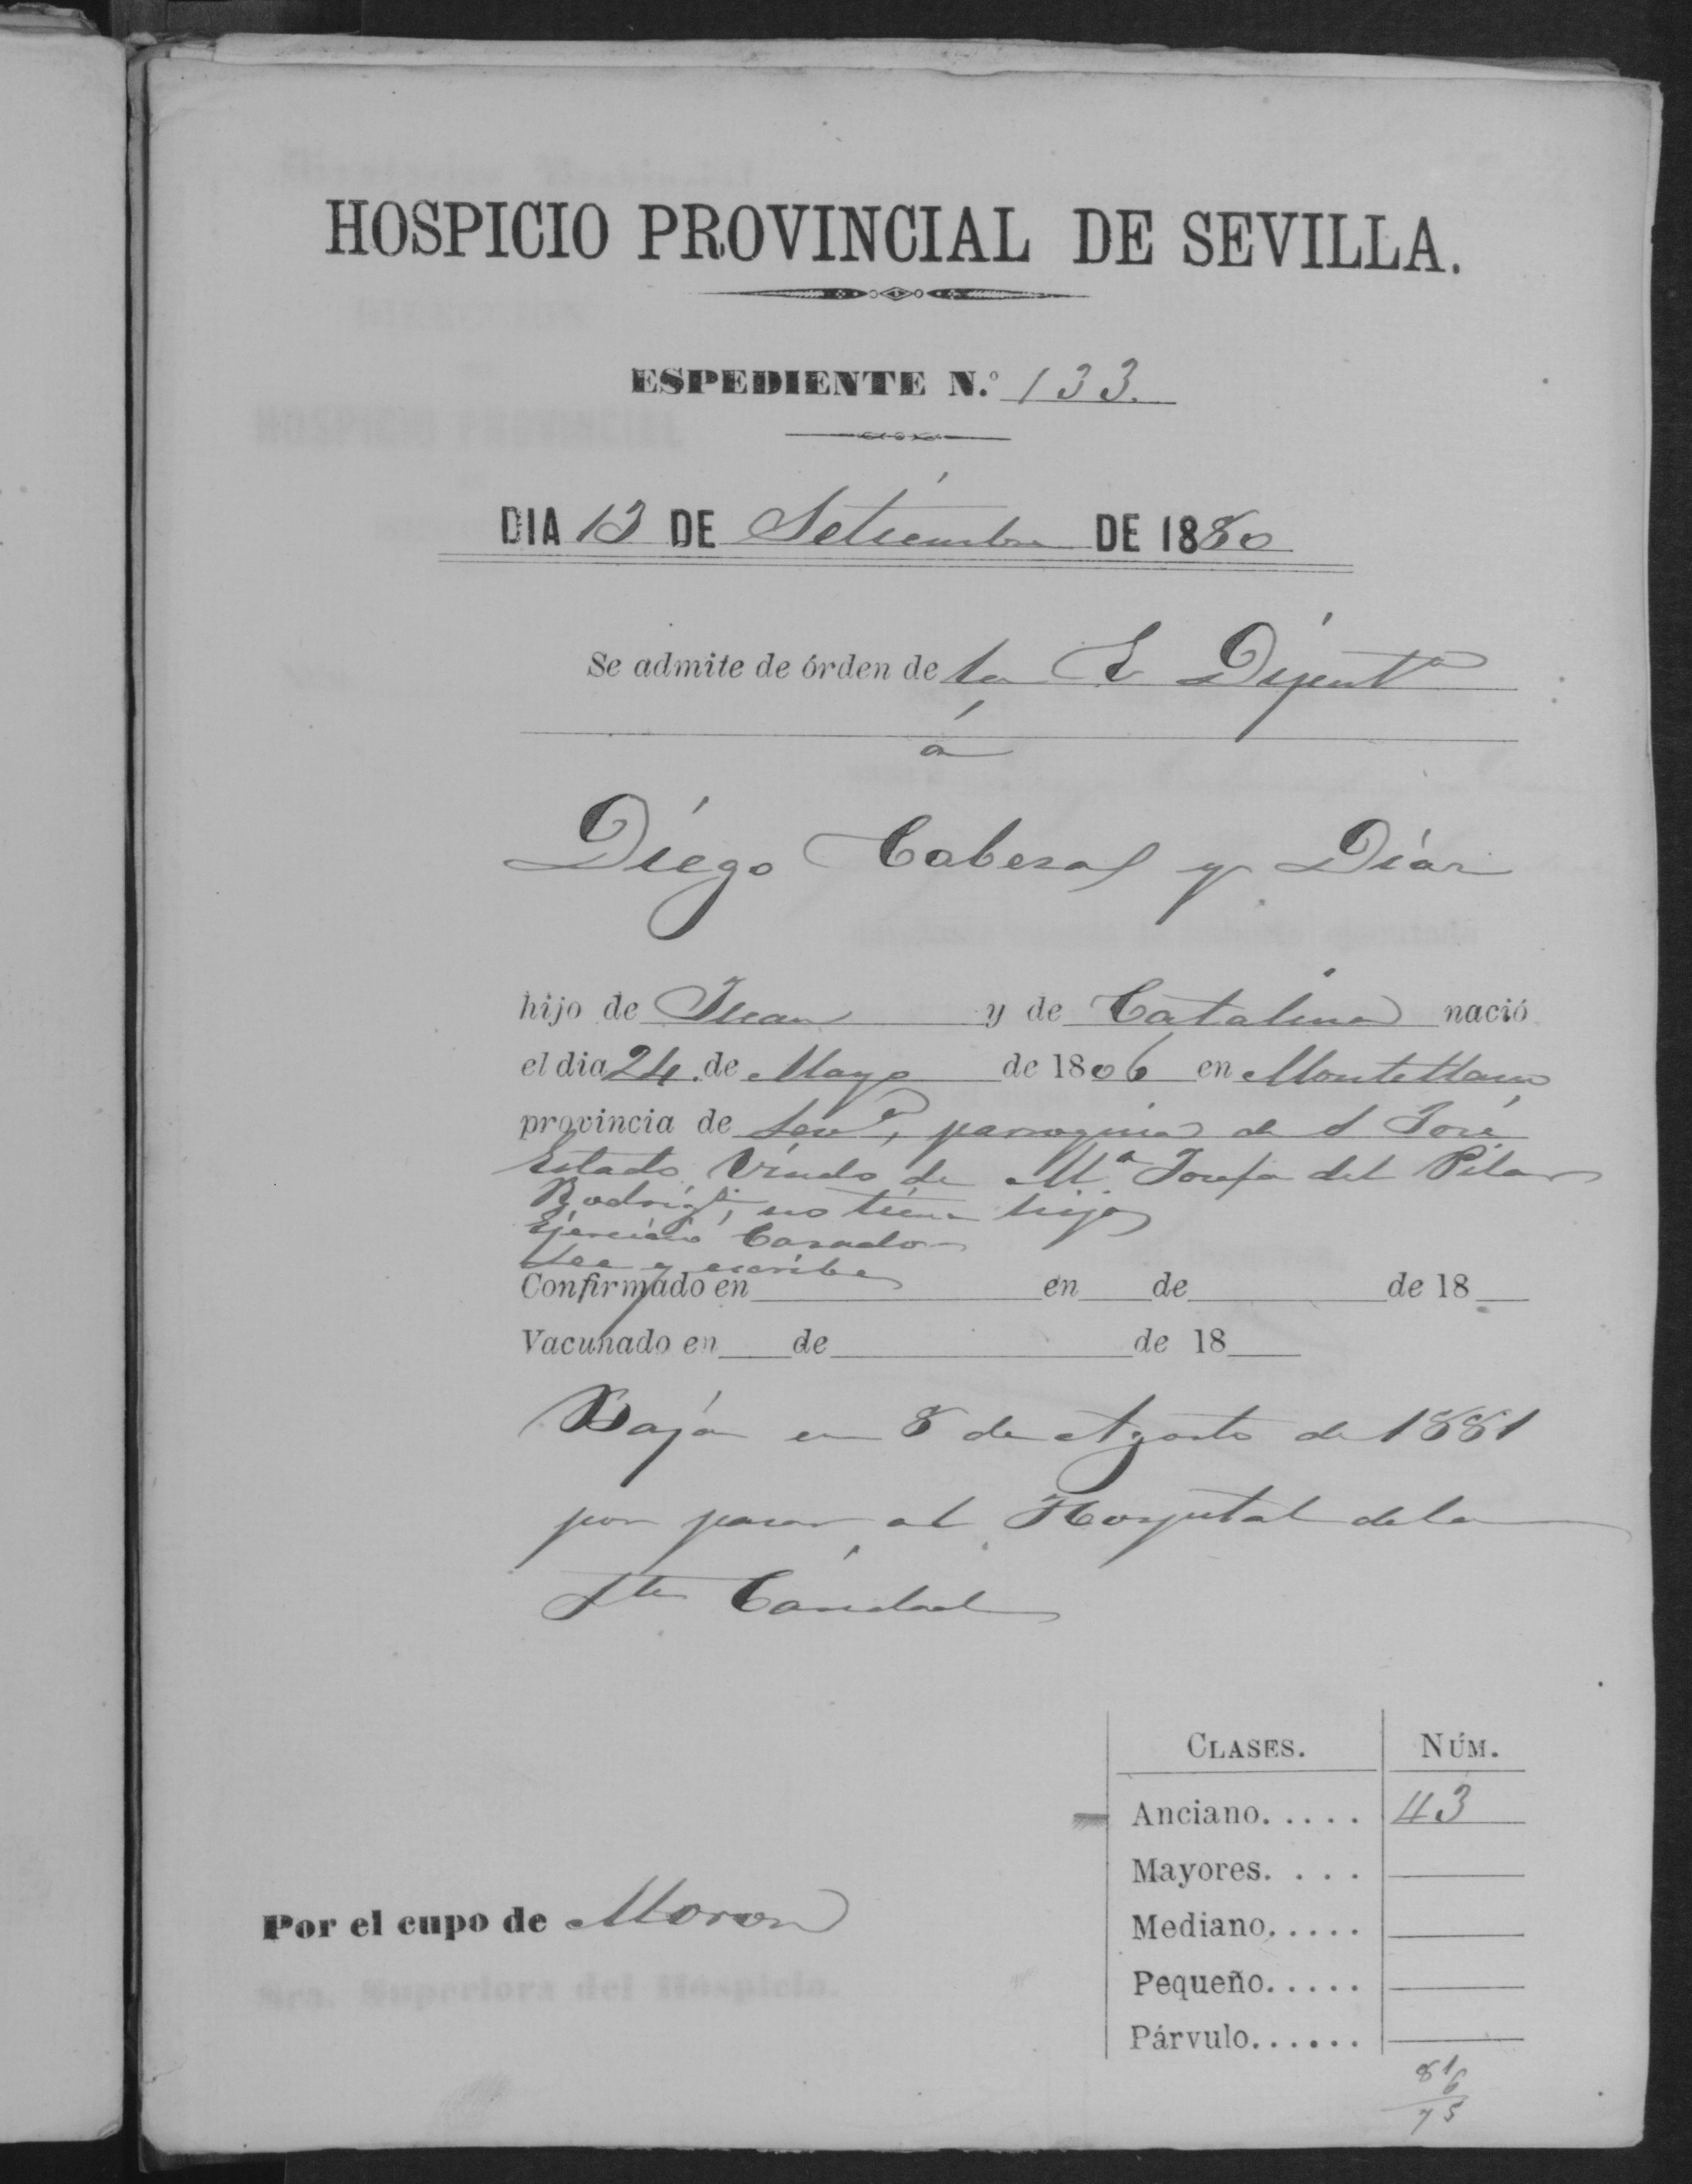 HOSPICIO PROVINCIAL DE SEVILLA.
ESPEDIENTE N.º 133.
DIA 13 DE Setiembre DE 1880
Se admite de órden de la E Diput.ⁿ
á
Diego Cabezas y Diaz
hijo de Juan y de Catalina nació
el dia 24 de Mayo de 1806 en Montellano
provincia de Sevª, parroquia de S José
Estado Viudo de Mª Josefa del Pilar
Rodrigz, no tiene hijos
Ejercicio
Lee y escribe
Confirmado en en de de 18
Vacunado en de de 18
Baja en 8 de Agosto de 1881
por pasar al Hospital de la
Sta Caridad
CLASES. NÚM.
Anciano..... 43
Mayores. ...
Mediano.....
Pequeño.....
Párvulo......
Por el cupo de Moron
81
6
75